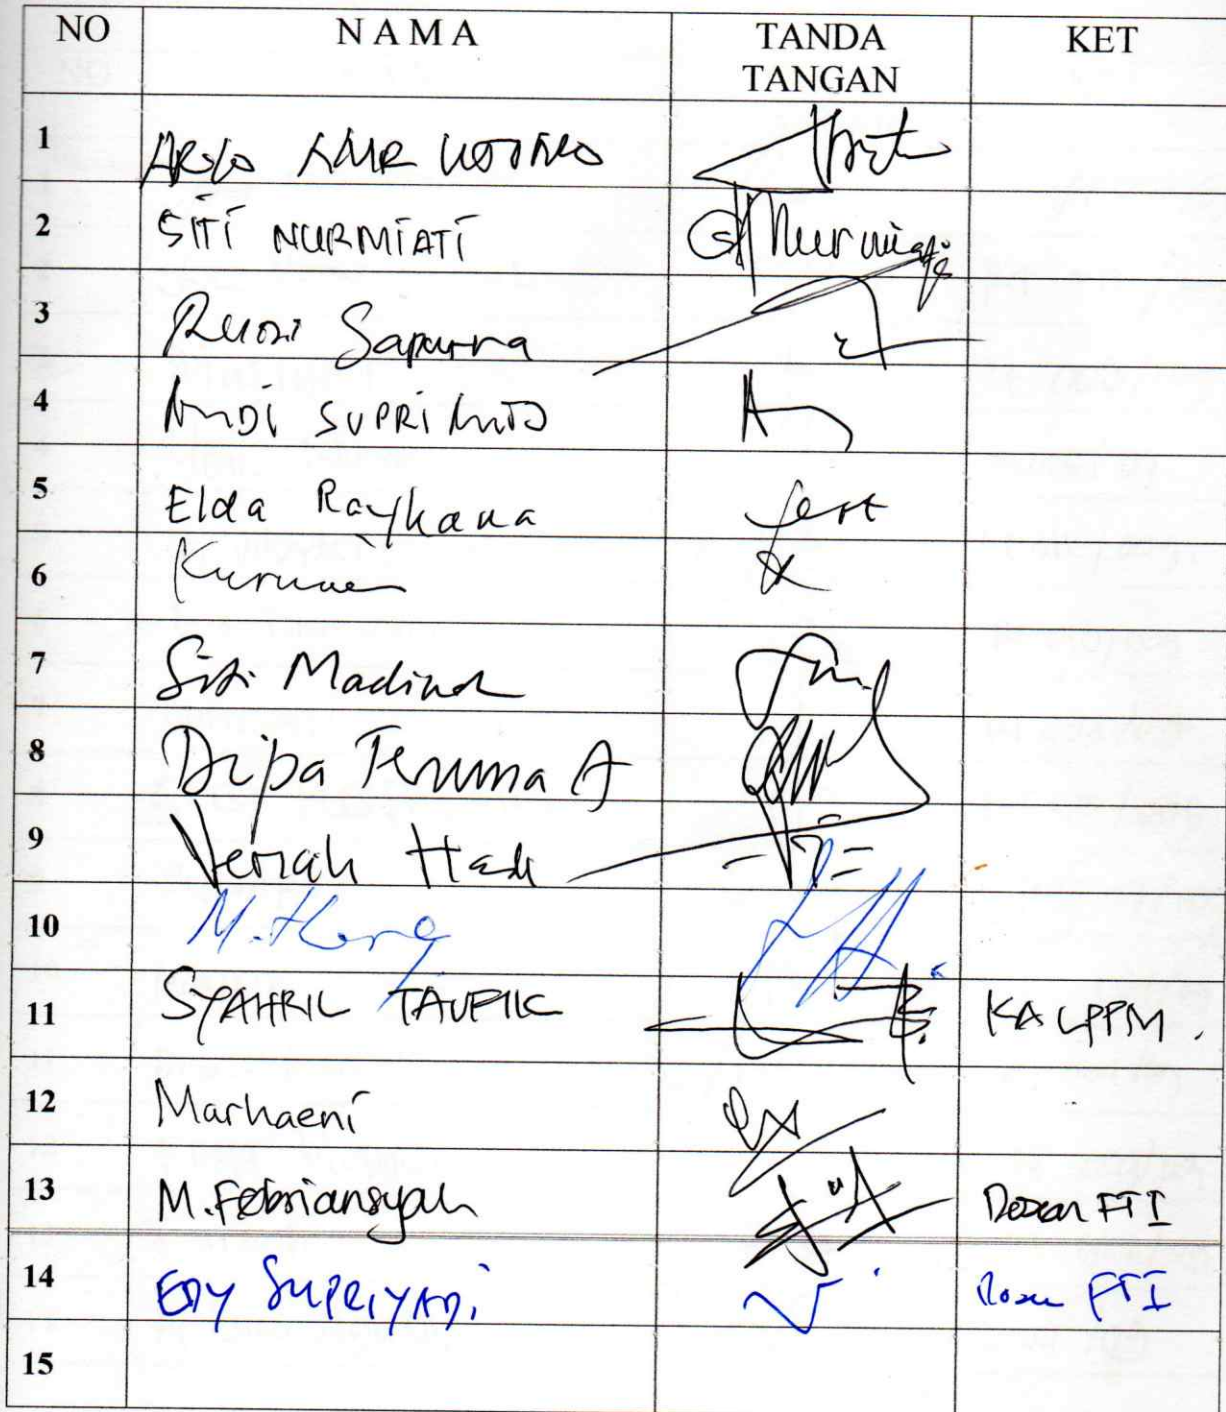 NO NAMA TANDA TANGAN KET
1
2 SITI NURMIATI Nurmiati
3 Rusdi Saputra
4 ANDI SUPRIANTO
5 Elda Rayhana
6 Kurniawan
7 Siti Madinah
8 Dipa Teruna A
9 Veriah Hadi
10 M.
11 SYAHRIL TAUFIK KA LPPM.
12 Marhaeni
13 M. Febriansyah Dosen FTI
14 EDY SUPRIYADI Dosen FTI
15